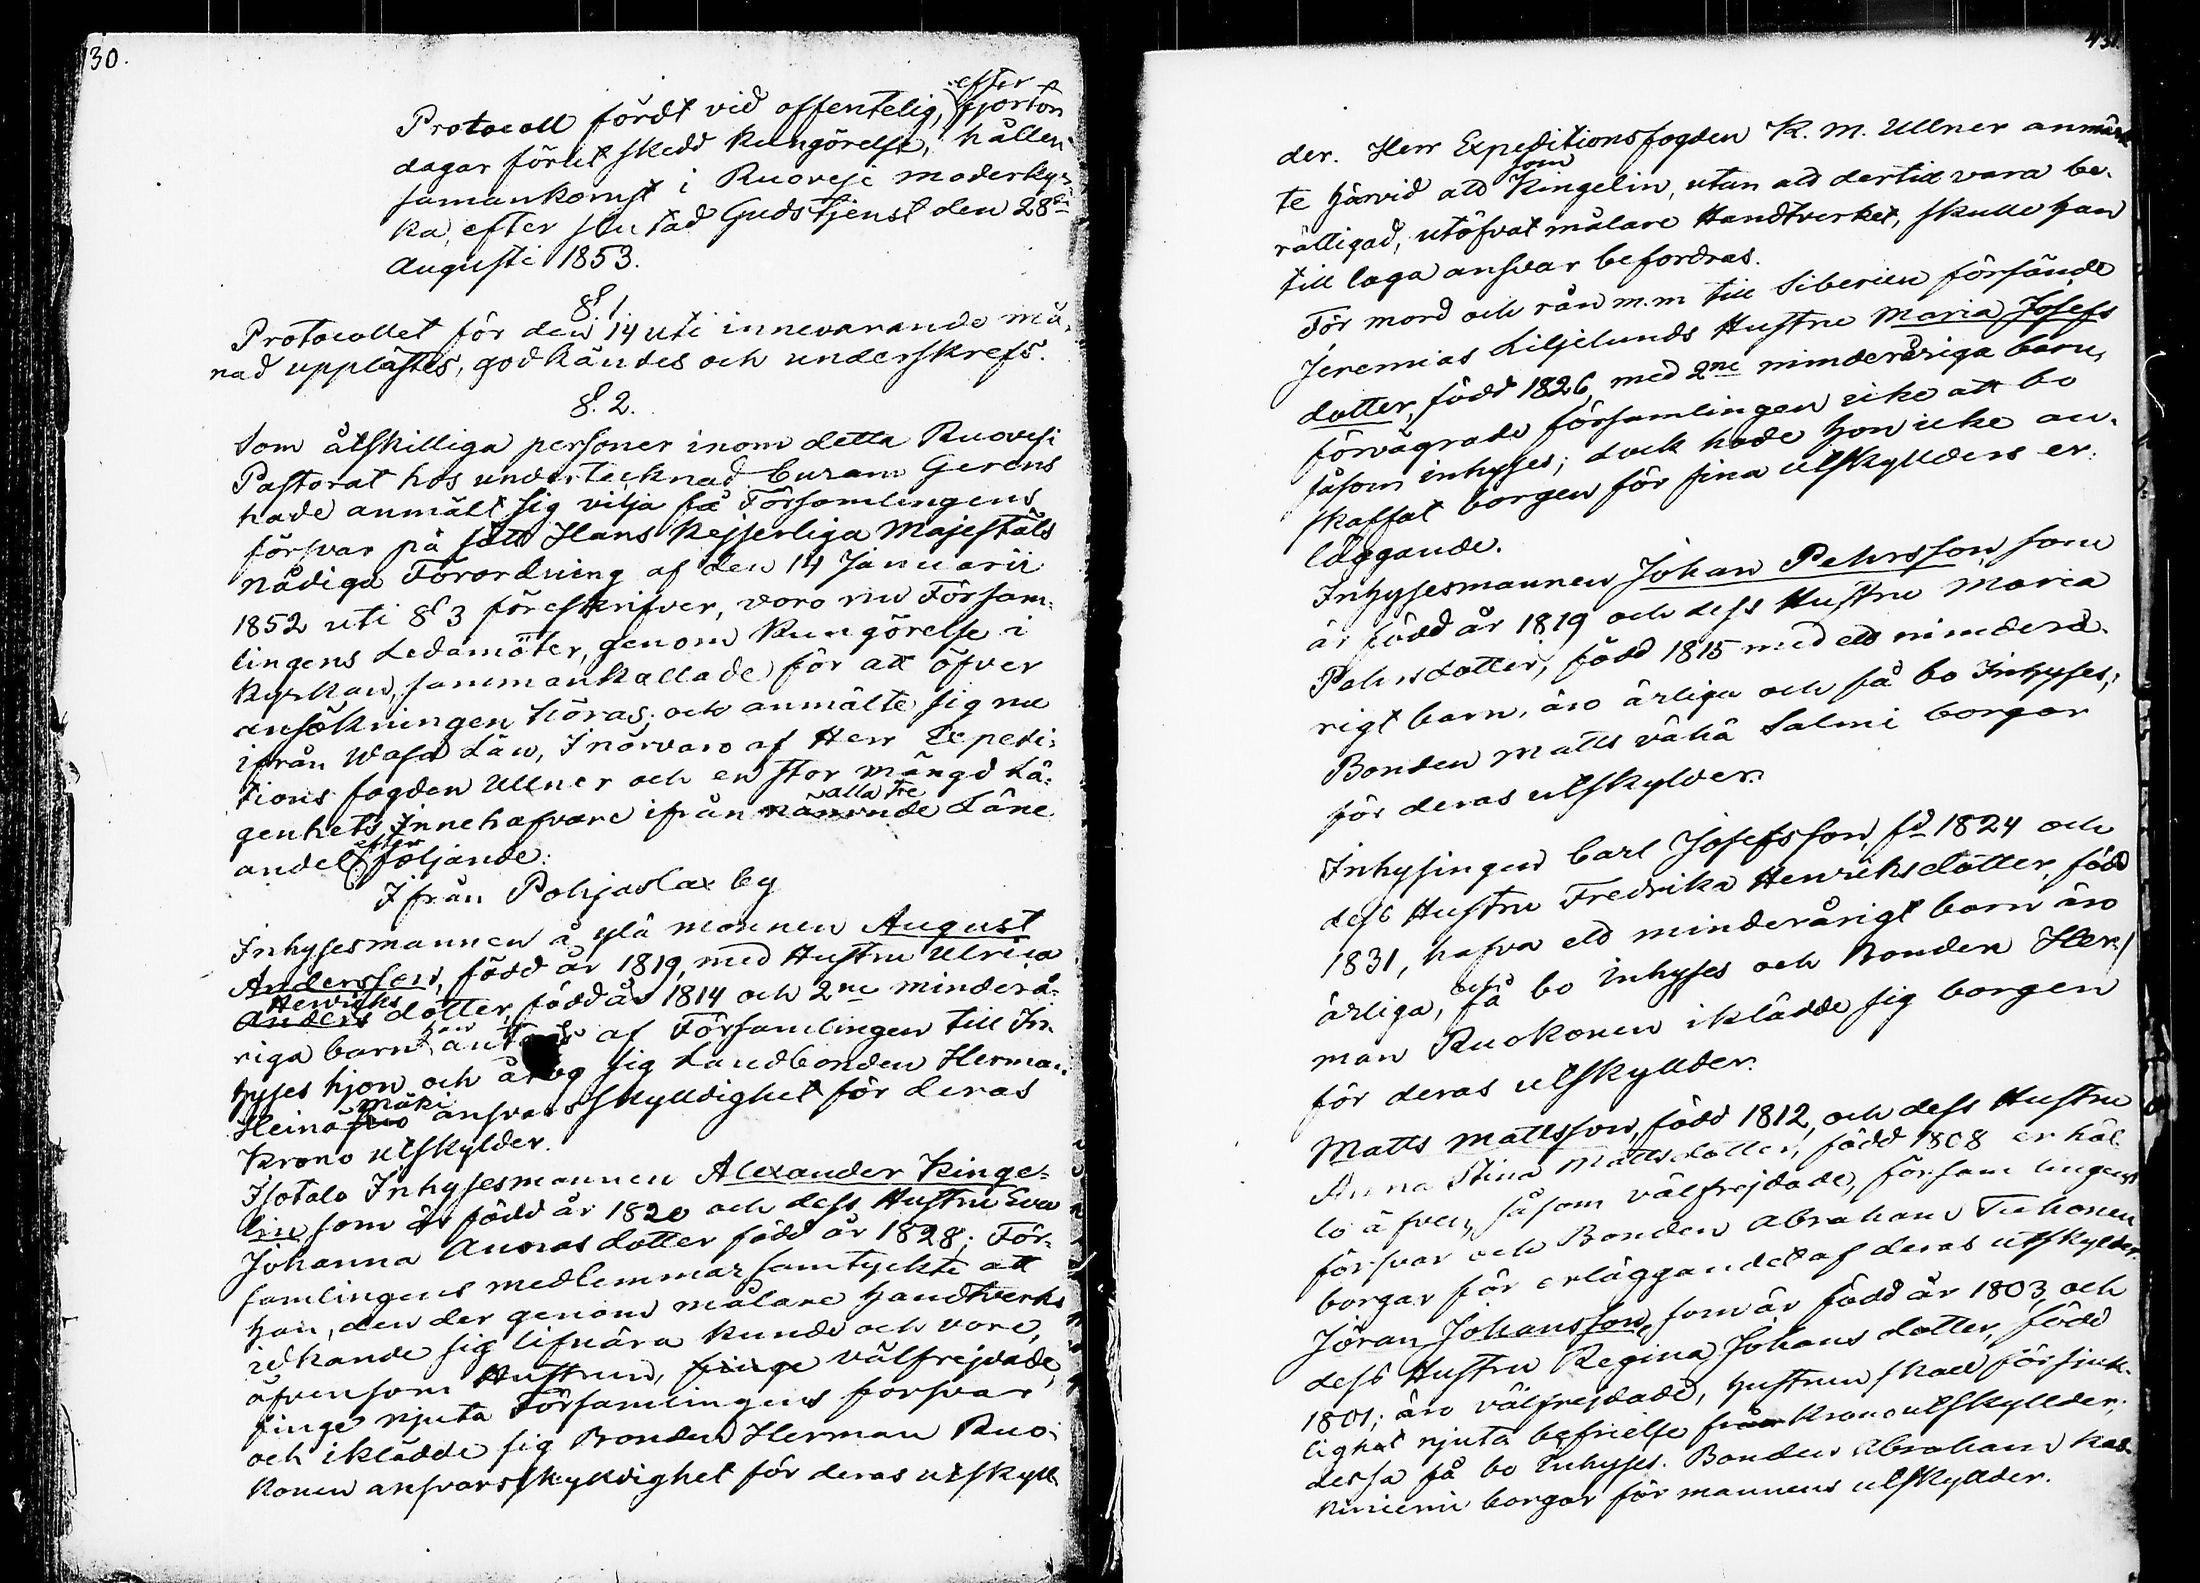 130.
Protocoll fördt vid offentelig, efter fjorton
dagar förut skedd kungörelse, hållen
samankomst i Ruovesi moderkyr-
ka, efter slutad Gudstjenst den 28de
Augusti 1853.
§ 1
Protocollet för den 14 uti innevarande må-
nad upplästes, godkändes och underskrefs.
§. 2.
Som åtskilliga personer inom detta Ruovesi
Pastorat hos undertecknad Curam Gerens
hade anmält sig vilja få Församlingens
försvar på sätt Hans Kejserliga Majestäts
Nådiga Förordning af den 14 Januarii
1852 uti § 3 föreskrifver, voro nu Försam-
lingens Ledamöter, genom kungörelse i
Kyrkan, sammankallade för att öfver
ansökningen höras; och anmälte sig nu
ifrån Wasa Län, I närvaro af Herr Expedi-
tions fogden Ullner och en stor mängd Lä-
genhets Innehafvare ifrån alla tre nämnde Läne
andel efter följande:
Ifrån Pohjaslax by
Inhysesmannen å ylä monnen August
Andersson, född år 1819, med Hustru Ulrica
Henriks Anders dotter, född år 1814 och 2ne minderå-
riga barn, han antogs af Församlingen till In-
hyses hjon och åtog sig Landbonden Herman
Heinä mäki ansvars skylldighet för deras
Krono utskylder.
Isotalo Inhysesmannen Alexander Kinge-
lin som är född år 1820 och dess Hustru Eva
Johanna Andersdotter född år 1828; För-
samlingens medlemmar samtyckte att
han, den der genom målare handtverks
idkande sig lifnära kunde och vore,
äfvensom Hustrun, finge välfrejdade,
finge njuta Församlingens forsvar
och iklädde sig Bonden Herman Ruo-
konen ansvarsskylldighet för deras utskyll-
431.
der. Herr Expeditionsfogden K. M. Ullner anmärk
te härvid att som Kingelin, utan att dertill vara be-
rättigad, utöfvat målare Handtverket, skulle han
till laga ansvar befordras.
För mord och rån m.m till Siberien försände
Jeremias Liljelunds Hustru Maria Josefs
dotter, född 1826, med 2ne minderåriga barn,
förvägrade församlingen icke att bo
såsom inhyses; dock hade hon icke an-
skaffat borgen för sina utskylders er-
läggande.
Inhysesmannen Johan Pehrsson som
är född år 1819 och dess Hustru Maria
Pehrsdotter, född 1815 med ett minderå-
rigt barn, äro ärliga och få bo Inhyses;
Bonden Matts vähä Salmi borgar
för deras utskylder.
Inhysingen Carl Josefsson, fd 1824 och
dess Hustru Fredrika Henriksdotter, född
1831, hafva ett minderårigt barn äro
ärliga, och få bo inhyses och Bonden Her-
man Ruokonen iklädde sig borgen
för deras utskyllder.
Matts Mattsson, född 1812, och dess Hustru
Anna Stina Mattsdotter, född 1808 erhål-
lo äfven, såsom välfrejdade, församlingens
försvar och Bonden Abraham Tuhonen
borgar för erläggandet af deras utskylder.
Jöran Johansson, som är född år 1803, och
dess Hustru Regina Johans dotter, född
1801; äro välfrejdade, hustrun skall för sjuk-
lighet njuta befrielse från Kronoutskyllder;
dessa få bo Inhyses. Bonden Abraham
kiniemi borgar för mannens utskyllder.